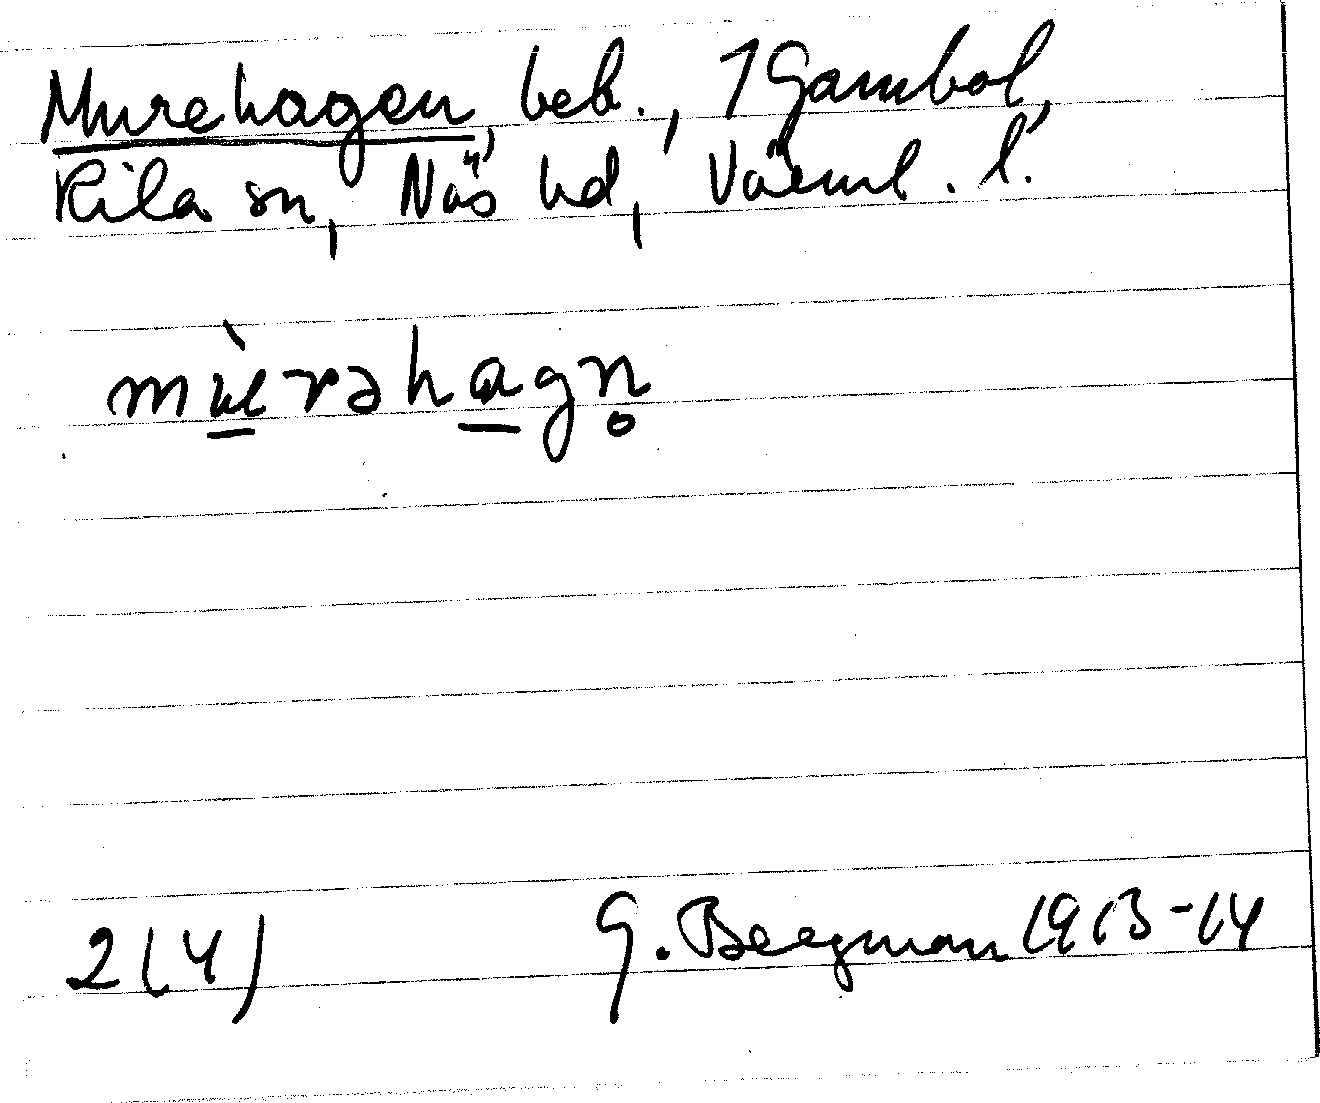 Murehagen, beb., 1 Gambol,
Kila sn, Näs hd, Värml. l.
mùrəhagn̥
2(4)
G. Bergman 1913-14